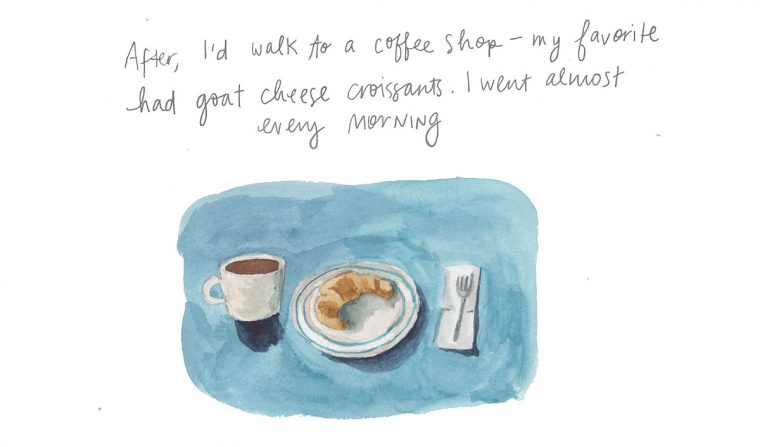 After, I'd walk to a coffee shop – my favorite
had goat cheese croissants. I went almost
every MORNING